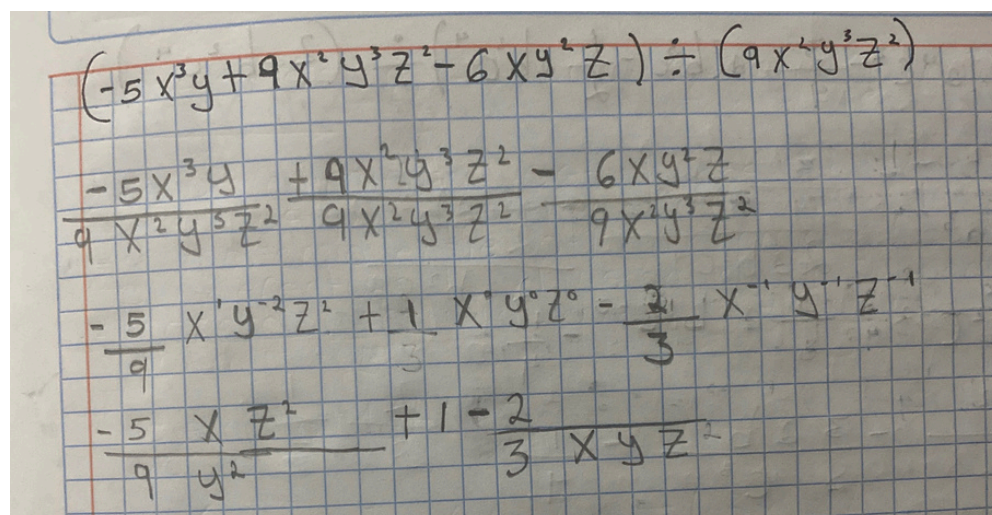 (-5x³y + 9x²y³z² - 6xy²z) ÷ (9x²y³z²)
-5x³y/9x²y³z² + 9x²y³z²/9x²y³z² - 6xy²z/9x²y³z²
-5/9 x¹y⁻²z² + 1 x⁰y⁰z⁰ - 2/3 x⁻¹y⁻¹z⁻¹
-5xz²/9y² + 1 - 2/3xyz